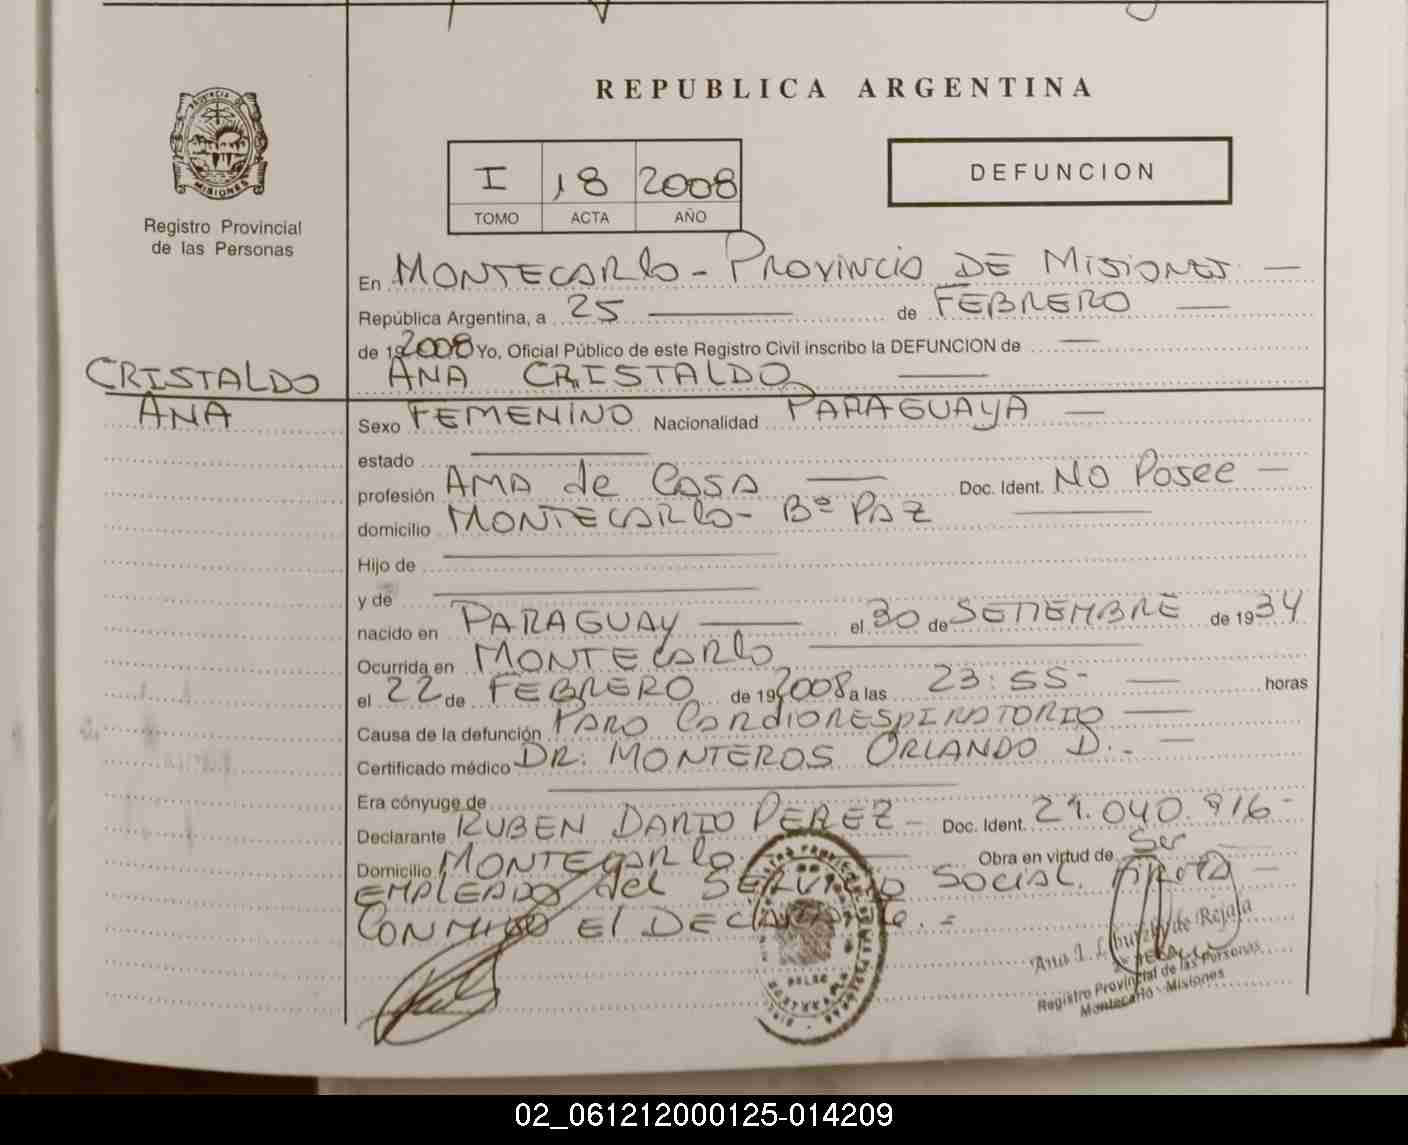 REPUBLICA ARGENTINA
PROVINCIA DE
MISIONES
Registro Provincial
de las Personas
I 18 2008
TOMO ACTA AÑO
DEFUNCION
En MONTECARLO - PROVINCIA DE MISIONES
República Argentina, a 25 de FEBRERO
de 19 2008 Yo, Oficial Público de este Registro Civil inscribo la DEFUNCION de
CRISTALDO
ANA
ANA CRISTALDO
Sexo FEMENINO Nacionalidad PARAGUAYA
estado
profesión AMA de CASA Doc. Ident. NO Posee
domicilio MONTECARLO - Bº PAZ
Hijo de
y de
nacido en PARAGUAY el 30 de SETIEMBRE de 1934
Ocurrida en MONTECARLO
el 22 de FEBRERO de 19 2008 a las 23:55- horas
Causa de la defunción PARO CARDIORESPIRATORIO
Certificado médico DR: MONTEROS ORLANDO D.-
Era cónyuge de
Declarante RUBEN DARIO PEREZ - Doc. Ident. 21.040.916-
Domicilio MONTECARLO Obra en virtud de Ser
EMPLEADO del SERVICIO SOCIAL. FIRMA
CONMIGO El DECLARANTE.=
Ana de Rejala
Registro Provincial de las Personas
Montecarlo - Misiones
02_061212000125-014209